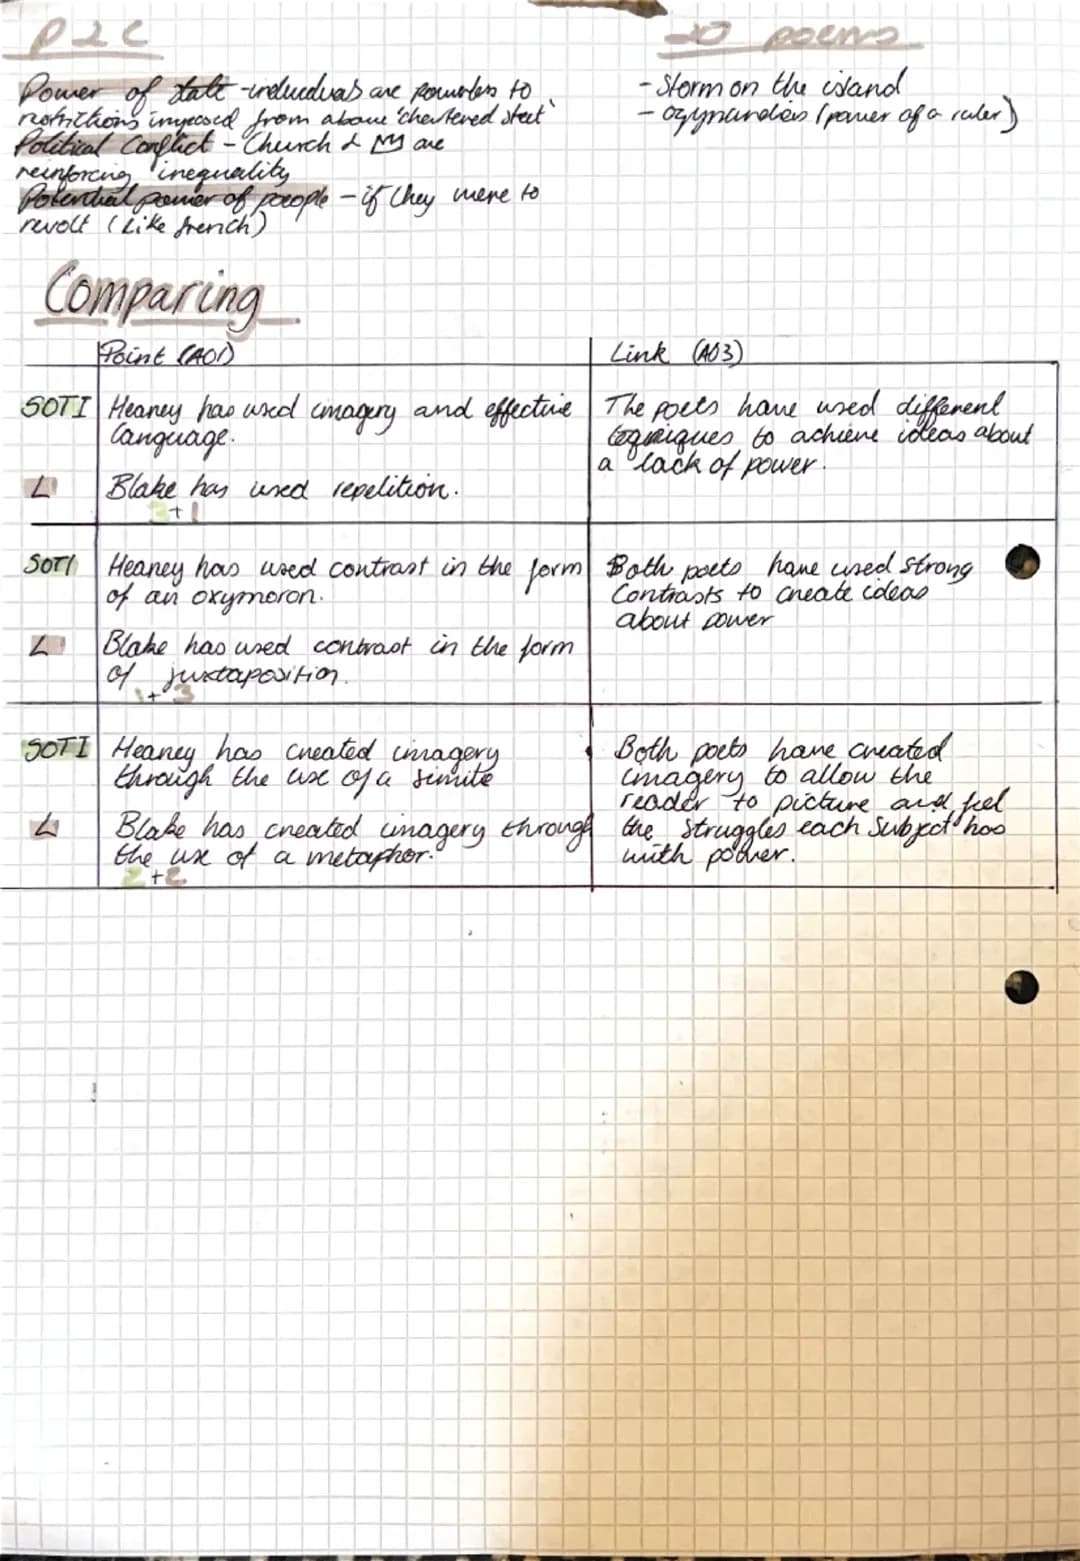 P2C
Power of state - individuals are powerless to
restrictions imposed from above 'chartered street'
Political Conflict - Church & are
reinforcing inequality
Potential power of people - if they were to
revolt (Like french)
poems
- Storm on the island
- Ozymandias (power of a ruler)
Comparing
Point (AO1)
Link (AO3)
SOTI Heaney has used imagery and effective
language.
L Blake has used repetition.
3+1
The poets have used different
teqniques to achieve ideas about
a lack of power.
SOTI Heaney has used contrast in the form
of an oxymoron.
L Blake has used contrast in the form
of juxtaposition.
1+3
Both poets have used strong
Contrasts to create ideas
about power
SOTI Heaney has created imagery
through the use of a simile
L Blake has created imagery through
the use of a metaphor.
2+2
Both poets have created
imagery to allow the
reader to picture and feel
the struggles each Subject has
with power.